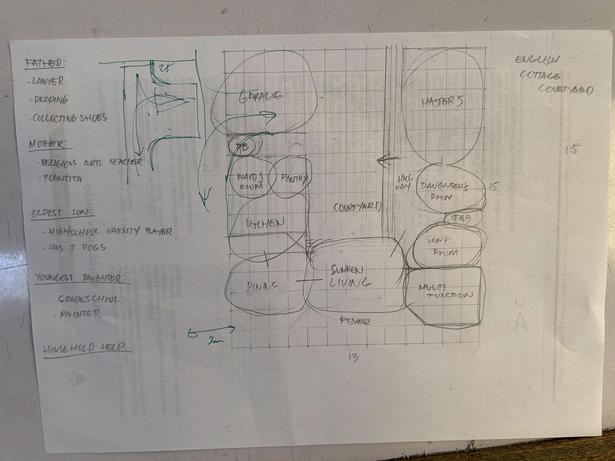 FATHER:
- LAWYER
- READING
- COLLECTING SHOES
MOTHER:
- RELIGIOUS ARTS TEACHER
- PLANTITA
ELDEST SON:
- HIGHSCHOOL VARSITY PLAYER
- HAS 2 DOGS
YOUNGEST DAUGHTER:
GRADESCHOOL
- PAINTER
HOUSEHOLD HELP
GARAGE
MAID'S
ROOM
PANTRY
KITCHEN
DINING
2m
COURTYARD
SUNKEN
LIVING
FOYER
13
MASTER'S
HALL
WAY
DAUGHTER'S
ROOM
15
T&B
SON'S
ROOM
MULTI
FUNCTION
ENGLISH
COTTAGE
COURTYARD
15